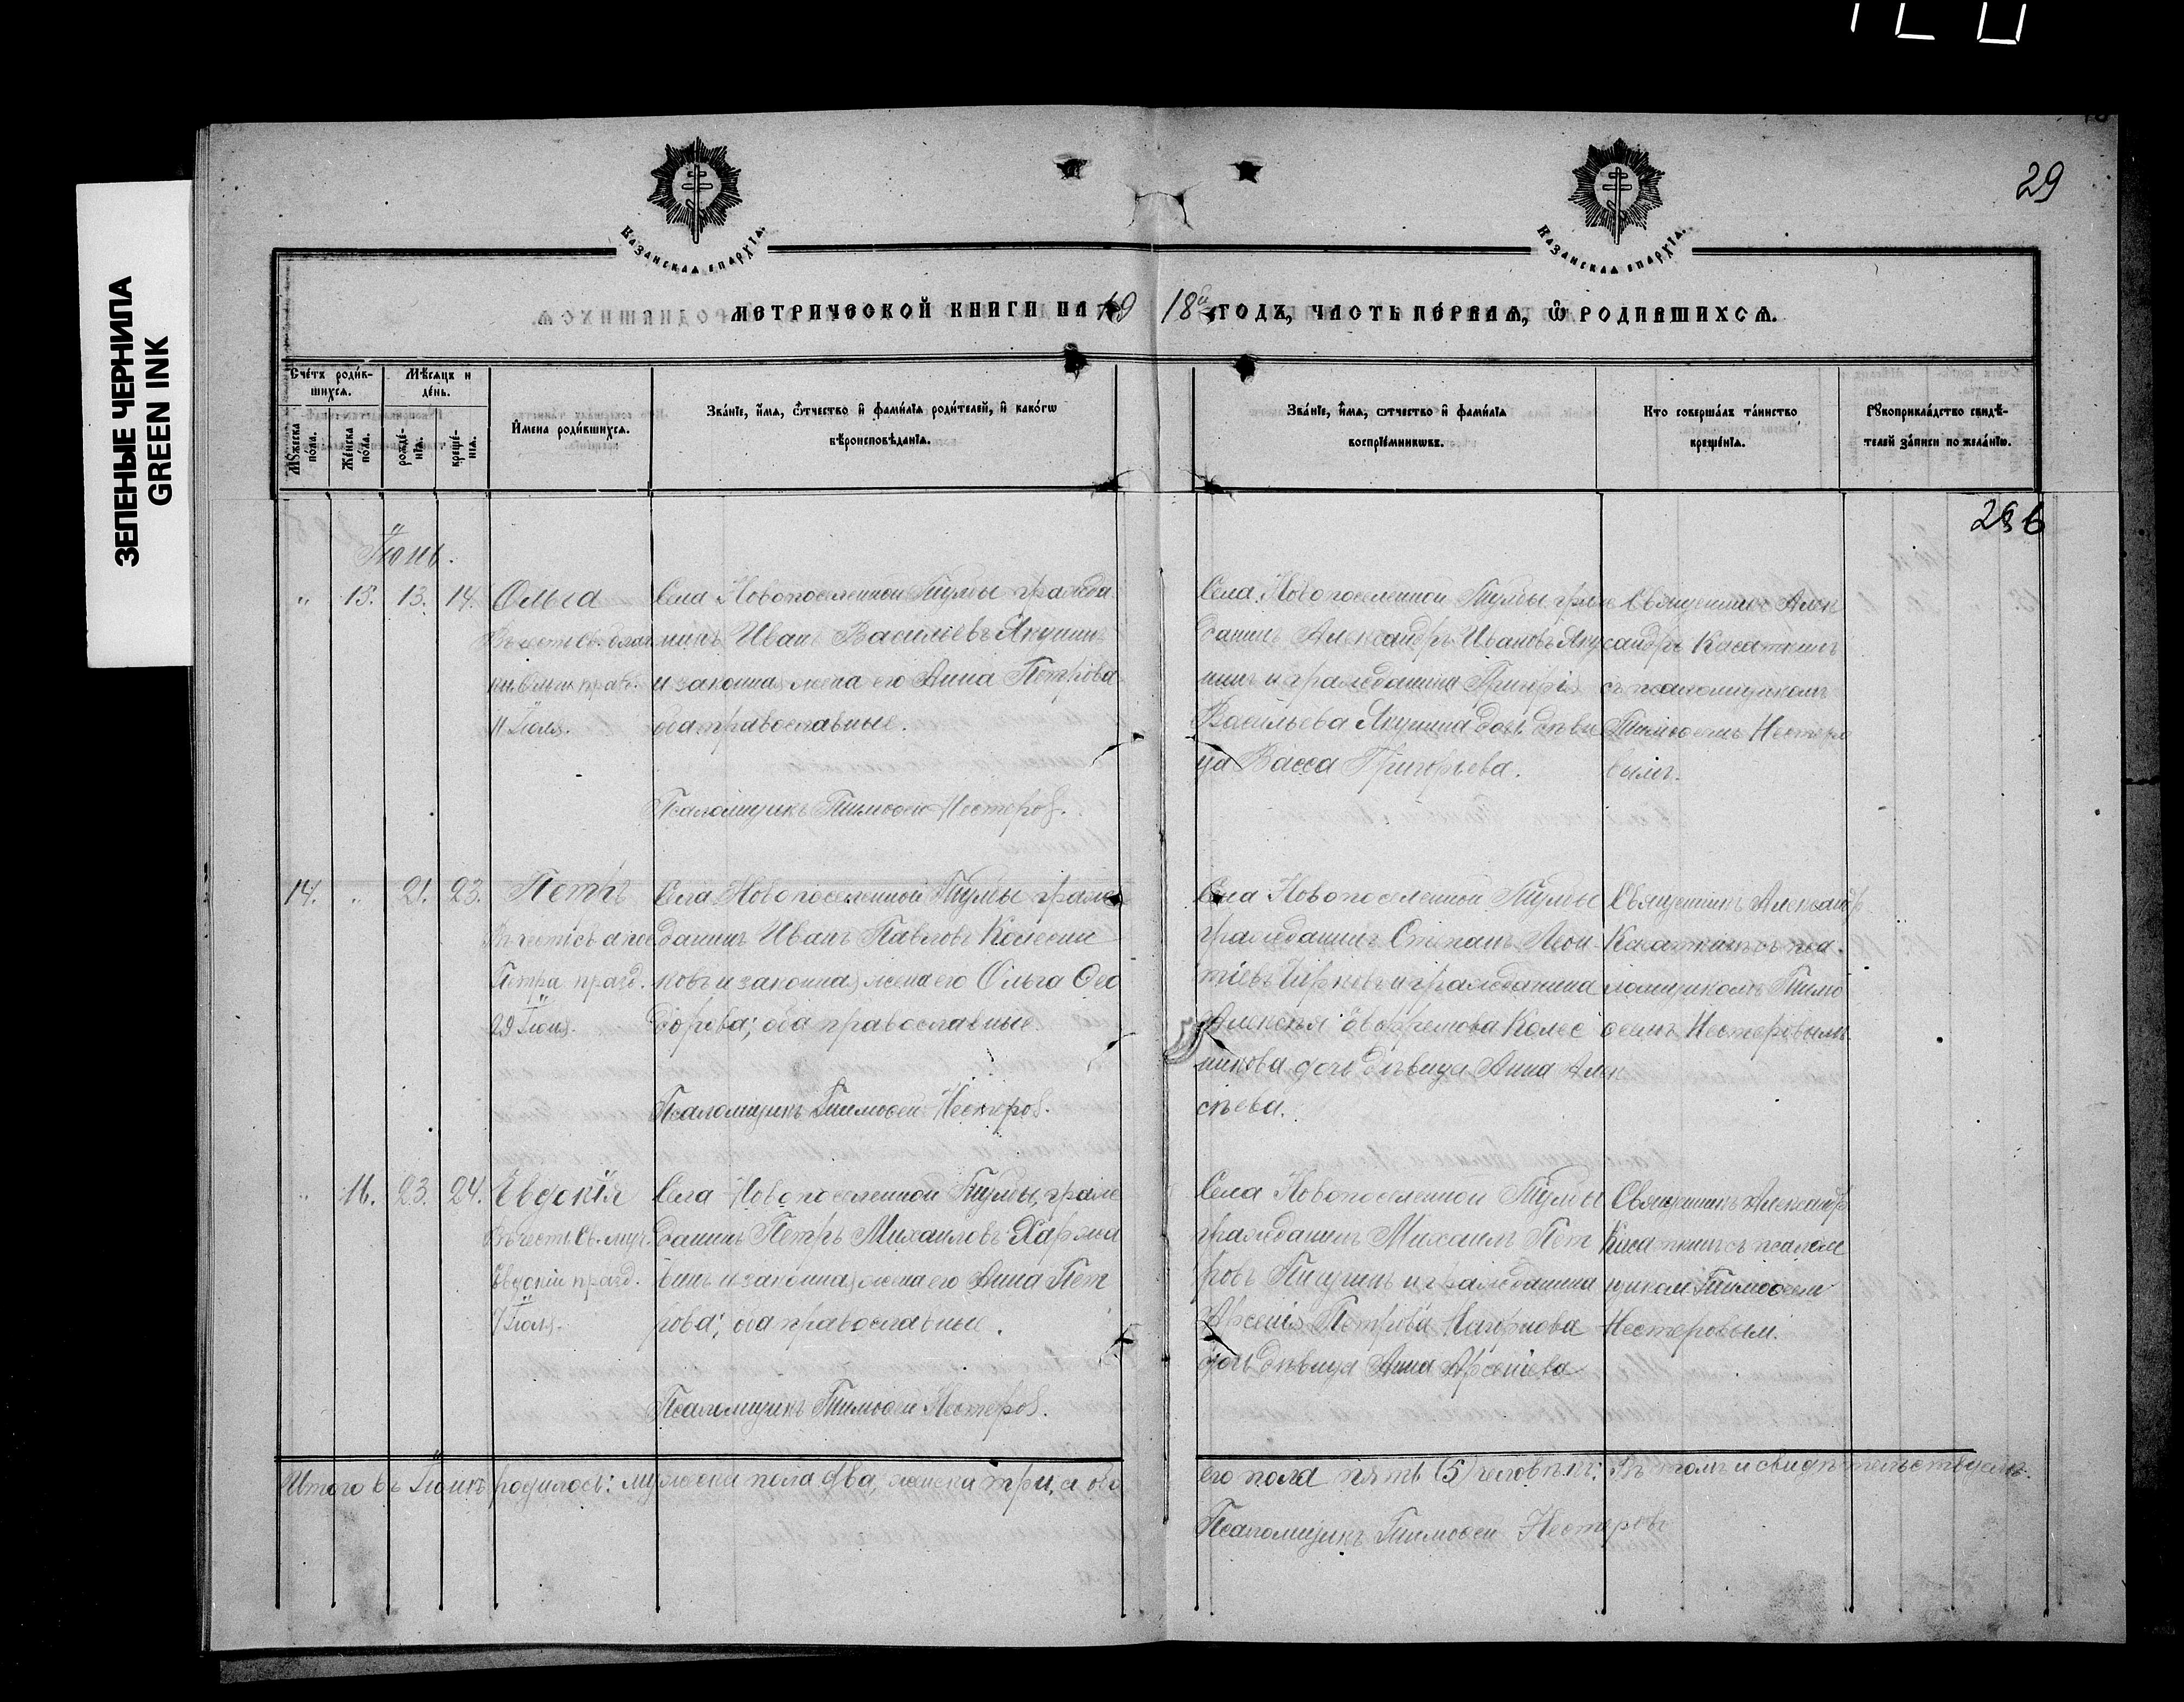 ЗЕЛЕНЫЕ ЧЕРНИЛА
GREEN INK
29
Казанская епархія.
Казанская епархія.
МЕТРИЧЕСКОЙ КНИГИ НА 1918й ГОДЪ, ЧАСТЬ ПЕРВАЯ, Ѡ РОДИВШИХСЯ.
Счетъ родив-
шихся.
Мѣсяцъ и
день.
Мужеска
пола.
Женска
пола.
рожде-
нія.
креще-
нія.
Имена родившихся.
Званіе, имя, отчество и фамилія родителей, и какогѡ
вѣроисповѣданія.
Званіе, имя, отчество и фамилія
воспріемниковъ.
Кто совершалъ таинство
крещенія.
Рукоприкладство свидѣ-
телей записи по желанію.
Іюнь.
„ 15. 13. 14.
Ольга
11 Іюля.
Села Новопоселенной Тиумы гражда
нинъ Иванъ Васильевъ Якунинъ
и законная жена его Анна Петрова
оба православные.
Псаломщикъ Тимоѳей Нестеровъ.
Села Новопоселенной Тиумы граж
данинъ Александръ Ивановъ Яку
нинъ и гражданина Григорія
Васильева Якунина дочь дѣви
ца Васса Григорьева.
Священникъ Алек
сандръ Касаткинъ
съ псаломщикомъ
Тимоѳеемъ Нестеро
вымъ.
14. „ 21. 23.
Петръ
Въ честь св. апос
Петра празд.
29 Іюня.
Села Новопоселенной Тиумы граж
данинъ Иванъ Павловъ Колесни
ковъ и законная жена его Ольга Ѳео
дорова; оба православные.
Псаломщикъ Тимоѳей Нестеровъ.
Села Новопоселенной Тиумы
гражданинъ Степанъ Леон
тіевъ и гражданина
Алексѣя Колес
никова дочь дѣвица Анна Алек
сѣева.
Священникъ Александръ
Касаткинъ съ пса
ломщикомъ Тимо
ѳеемъ Нестеровымъ.
„ 16. 23. 24.
Евдокія
Въ честь Св. муч.
Евдокіи празд.
7 Іюля.
Села Новопоселенной Тиумы, граж
данинъ Петръ Михаиловъ
и законная жена его Анна Пет
рова; оба православные.
Псаломщикъ Тимоѳей Нестеровъ.
Села Новопоселенной Тиумы
гражданинъ Михаилъ Пет
ровъ и гражданина
Арсенія Петрова
дочь дѣвица Анна Арсеніева
Священникъ Александръ
Касаткинъ съ псалом
щикомъ Тимоѳеемъ
Нестеровымъ.
Итого въ Іюнѣ родилось: мужеска пола два, женска три, а обо
его пола пять (5) человѣкъ; въ томъ и свидѣтельствуемъ.
Псаломщикъ Тимоѳей Нестеровъ